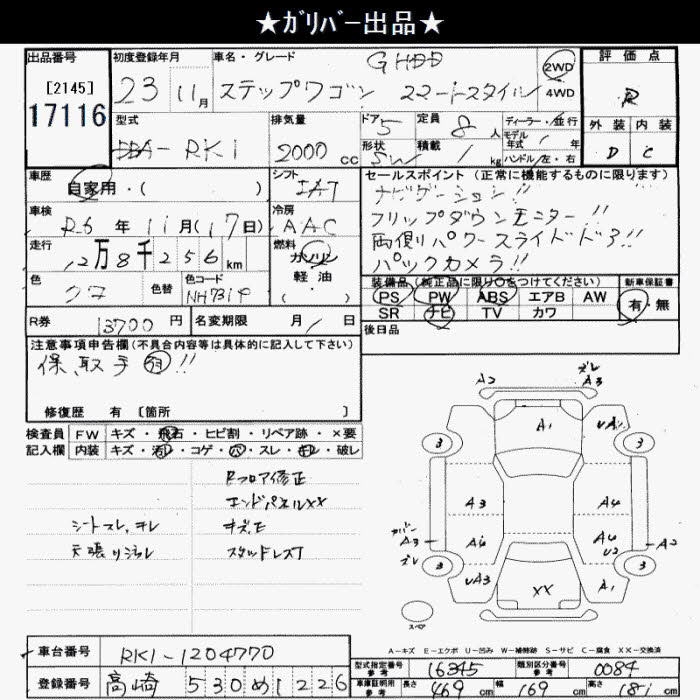 ★ガリバー出品★
出品番号
[2145]
17116
初度登録年月
23 11月
車名・グレード
ステップワゴン スマートスタイル
2WD
4WD
評価点
R
外装 内装
D C
型式
DBA-RK1
排気量
2000 cc
ドア 5
形状 SW
定員 8 人
積載 / kg
ディーラー・並行
モデル年式 / 年
ハンドル 左・右
車歴
自家用・( )
シフト
IAT
セールスポイント(正常に機能するものに限ります)
ナビゲーション!!
フリップダウンモニター!!
両側パワースライドドア!!
バックカメラ!!
車検
R6 年 11月(17日)
冷房
AAC
走行
12万8千256km
燃料
ガソリン
軽油
( )
色
クロ
色替
色コード
NH731P
装備品(純正品に限り○をつけてください)
PS PW ABS エアB AW
SR ナビ TV カワ
新車保証書
有・無
R券
13700円
名変期限
月 / 日
後日品
注意事項申告欄(不具合内容等は具体的に記入して下さい)
保、取、手 有!!
修復歴 有 [箇所 ]
検査員
記入欄
FW キズ・飛石・ヒビ割・リペア跡・×要
内装 キズ・汚れ・コゲ・穴・スレ・キレ・破レ
Rフロア修正
エンドパネルXX
シートスレ、キレ
キズ、E
天張りヨゴレ
スタッドレスT
A2
ズレ
A3
A1
UA1
3
3
A3
A4
カバー
A3
ズレ
A4
A4
U2
A2
3
3
UA3
XX
A1
スペア
A-キズ E-エクボ U-凹み W-補修跡 S-サビ C-腐食 XX-交換済
車台番号
RK1-1204770
登録番号
高崎 530 め 1226
型式指定番号
参考
16345
類別区分番号
参考
0084
車庫証明用
参考
長さ 469 cm 幅 169 cm 高さ 181 cm